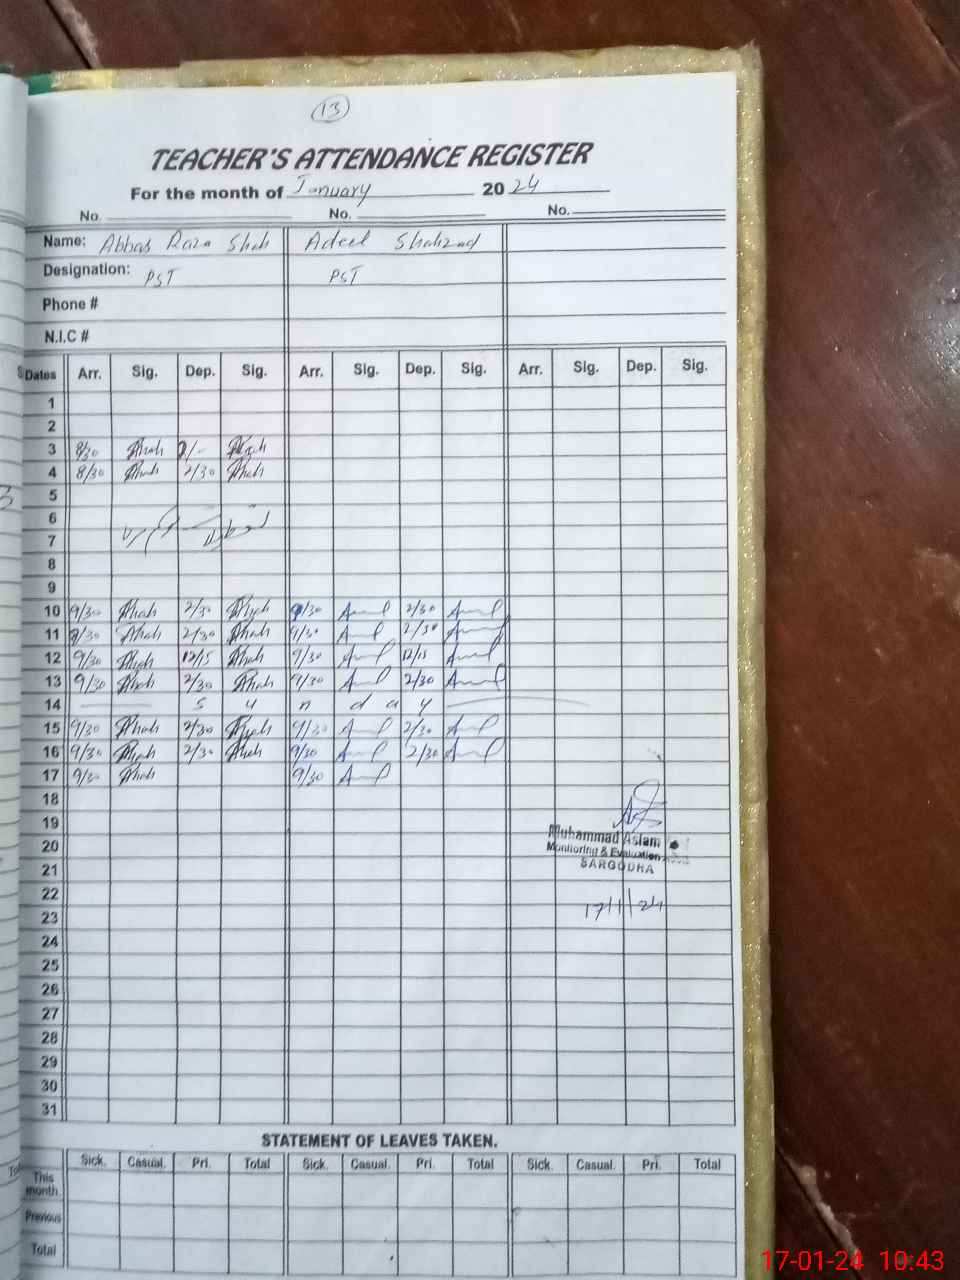 13
TEACHER'S ATTENDANCE REGISTER
For the month of January 2024
No. No. No.
Name: Abbas Raza Shah Adeel Shahzad
Designation: PST PST
Phone #
N.I.C #
Dates Arr. Sig. Dep. Sig. Arr. Sig. Dep. Sig. Arr. Sig. Dep. Sig.
1
2
3 8/30 Shah Shah
4 8/30 Shah 2/30 Shah
5
6
7
8
9
10 9/30 Shah 2/30 Shah 9/30 2/30
11 9/30 Shah 2/30 Shah 9/30 2/30
12 9/30 Shah 12/15 Shah 9/30 12/15
13 9/30 Shah 2/30 Shah 9/30 2/30
14 S u n d a y
15 9/30 Shah 2/30 Shah 9/30 2/30
16 9/30 Shah 2/30 Shah 9/30 2/30
17 9/30 Shah 9/30
18
19
20
Muhammad Aslam
Monitoring & Evaluation
SARGODHA
21
22
17/1/24
23
24
25
26
27
28
29
30
31
STATEMENT OF LEAVES TAKEN.
Sick. Casual. Pri. Total Sick. Casual. Pri. Total Sick. Casual. Pri. Total
This month.
Previous
Total
17-01-24 10:43